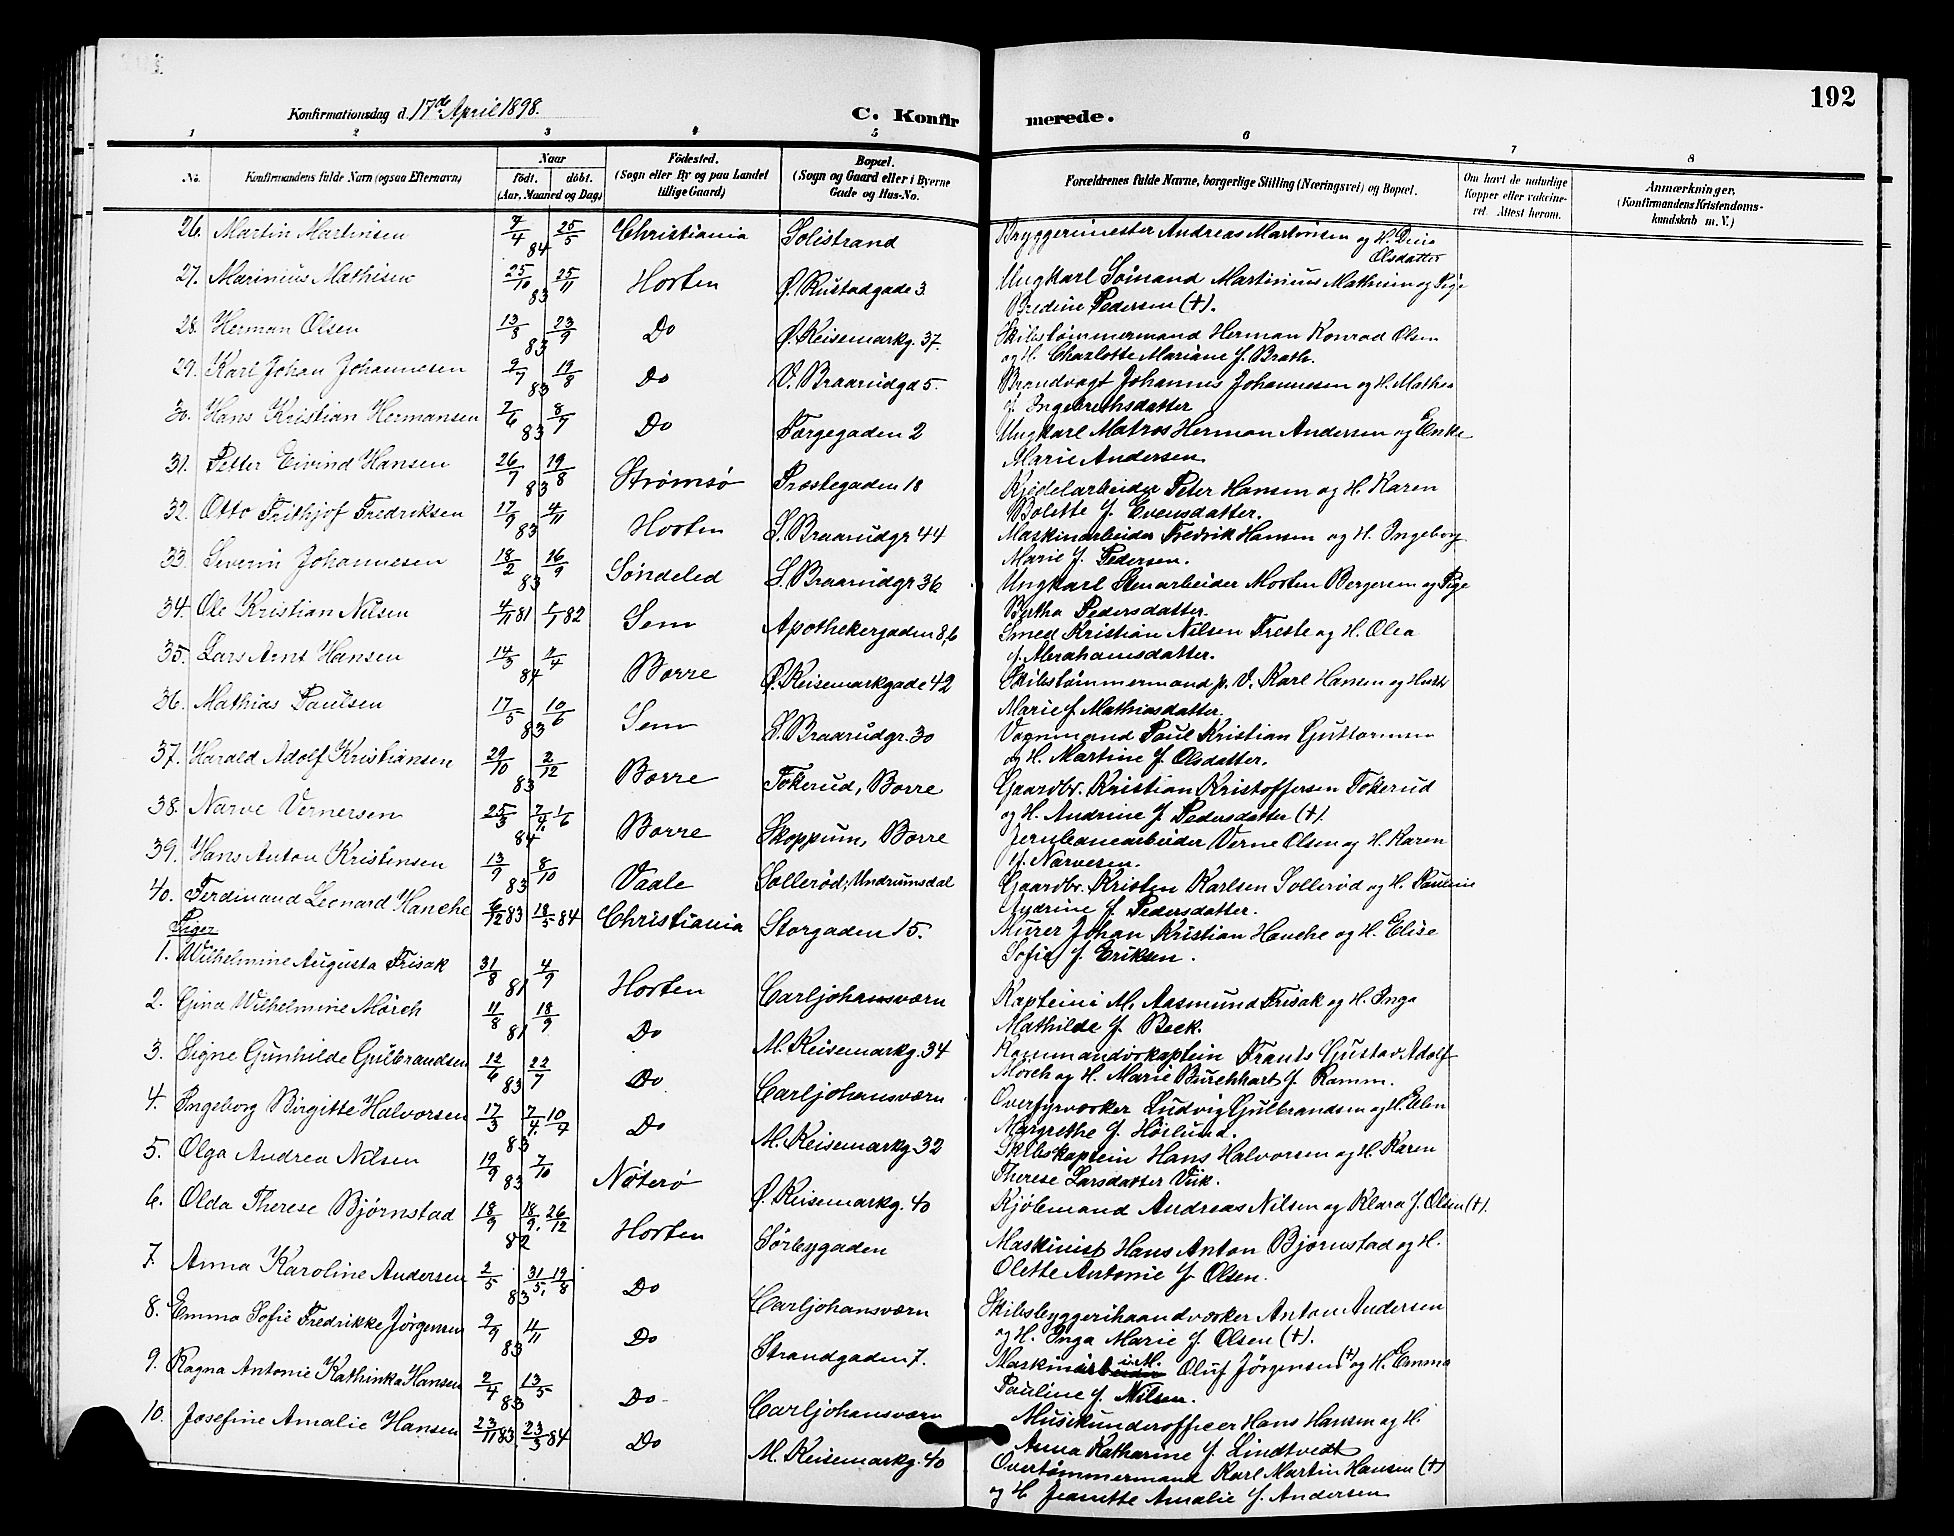 192
Konfirmationsdag d. 17de April 1898.
C. Konfirmerede.
1 2 3 4 5 6 7 8
No. Konfirmandens fulde Navn (ogsaa Efternavn) Naar Födt. döbt. (Aar, Maaned og Dag) Födested. (Sogn eller By og paa Landet tillige Gaard) Bopæl. (Sogn og Gaard eller i Byerne Gade og Hus-No. Forældrenes fulde Navne, borgerlige Stilling (Næringsvei) og Bopæl. Om havt de naturlige Kopper eller vaccineret. Attest herom. Anmærkninger. (Konfirmandens Kristendomskundskab m. V.)
26. Martin Martinsen 7/4 84 25/5 Christiania Solistrand Bryggerimester Andreas Martinsen og H. Olsdatter
27. Marinius Mathisen 25/10 83 25/11 Horten Ø. Rustadgade 3 Ungkarl Sömand Martinius Mathisen og Pige
Bredine Pedersen (†).
28. Herman Olsen 13/8 83 23/9 Do Ø. Keisemarkg. 37. Skibstømmermand Herman Konrad Olsen
og H. Charlotte Mariane f. Brath.
29. Karl Johan Johannesen 9/7 83 19/8 Do V. Braarudgd 5 Brandvagt Johannes Johannesen og H. Mathea
f. Ingebrethsdatter
30. Hans Kristian Hermansen 7/6 83 8/7 Do Færgegaden 2 Ungkarl Matros Herman Andersen og Enke
Marie Andersen
31. Petter Eivind Hansen 26/7 83 19/8 Strømsø Præstegaden 18 Kjedelarbeider Peter Hansen og H. Karen
Bolette f. Evensdatter.
32. Otto Frithjof Fredriksen 17/9 83 4/11 Horten S. Braarudgr 44 Maskinarbeider Fredrik Hansen og H. Ingeborg
Marie f. Pedersen.
33. Severin Johannesen 18/2 83 16/9 Söndeled S. Braarudgr 36 Ungkarl Stenarbeider Morten Bergersen og Pige
Bertha Pedersdatter.
34. Ole Kristian Nilsen 4/11 81 1/1 82 Sem Apothekergaden 8,6 Smed Kristian Nilsen Freste og H. Olea
f. Abrahamsdatter.
35. Lars Arnt Hansen 14/3 84 7/4 Borre Ø. Keisemarkgade 42 Skibstømmermand p. V. Karl Hansen og Hustr
Marie f. Mathiasdatter.
36. Mathias Paulsen 17/5 83 10/6 Sem S. Braarudgr. 30 Vognmand Paul Kristian Guttormsen
og H. Martine f. Olsdatter.
37. Harald Adolf Kristiansen 29/10 83 2/12 Borre Fokerud, Borre Gaardbr. Kristian Kristoffersen Fokerud
og H. Andrine f. Pedersdatter (†).
38. Narve Vernersen 25/3 84 7/4, 1/6 Borre Skoppum, Borre Jernbanearbeider Verne Olsen og H. Karen
f. Narvesen.
39. Hans Anton Kristensen 13/9 83 8/10 Vaale Sollerød, Undrumsdal Gaardbr. Kristen Karlsen Sollerød og H. Pauline
Andrine f. Pedersdatter.
40. Ferdinand Leonard Hanche 6/12 83 18/5 84 Christiania Storgaden 15. Murer Johan Kristian Hanche og H. Elise
Sofie f. Eriksen.
Piger
1. Wilhelmine Augusta Frisak 31/8 81 4/9 Horten Carljohansværn Kaptein i M. Aasmund Frisak og H. Inga
Mathilde f. Beck.
2. Gina Wilhelmine Mörch 11/8 81 18/9 Do M. Keisemarkg. 34 Kommandørkaptein Frants Gustav Adolf
Mörch og H. Marie Burchhart f. Ramm.
3. Signe Gunhilde Gulbrandsen 12/6 83 22/7 Do Carljohansværn Overfyrværker Ludvig Gulbrandsen og H. Elen
Margrethe f. Höslund.
4. Ingeborg Birgitte Halvorsen 17/3 83 7/4, 10/7 Do M. Keisemarkg 32 Skibskaptein Hans Halvorsen og H. Karen
Therese Larsdatter Viik.
5. Olga Andrea Nilsen 19/9 83 7/10 Nøterø Ø. Keisemarkg. 40 Kjöbmand Andreas Nilsen og Klara f. Olsen (†).
6. Olda Therese Bjørnstad 18/9 82 18/9, 26/12 Horten Sörbygaden Maskinist Hans Anton Bjørnstad og H.
Olette Antonie f. Olsen.
7. Anna Karoline Andersen 2/5 83 31/5, 19/8 Do Carljohansværn Skibsbyggerihaandværker Anton Andersen
og H. Inga Marie f. Olsen (†).
8. Emma Sofie Fredrikke Jörgensen 2/9 83 4/11 Do Strandgaden 7. Maskinist i M. Oluf Jörgensen (†) og H. Emma
Pauline f. Nilsen.
9. Ragna Antonie Kathinka Hansen 2/4 83 13/5 Do Carljohansværn Musikunderofficer Hans Hansen og H.
Anna Katharine f. Lindtvedt
10. Josefine Amalie Hansen 23/11 83 23/3 84 Do M. Keisemarkg. 40 Overtømmermand Karl Martin Hansen (†)
og H. Jeanette Amalie f. Andersen